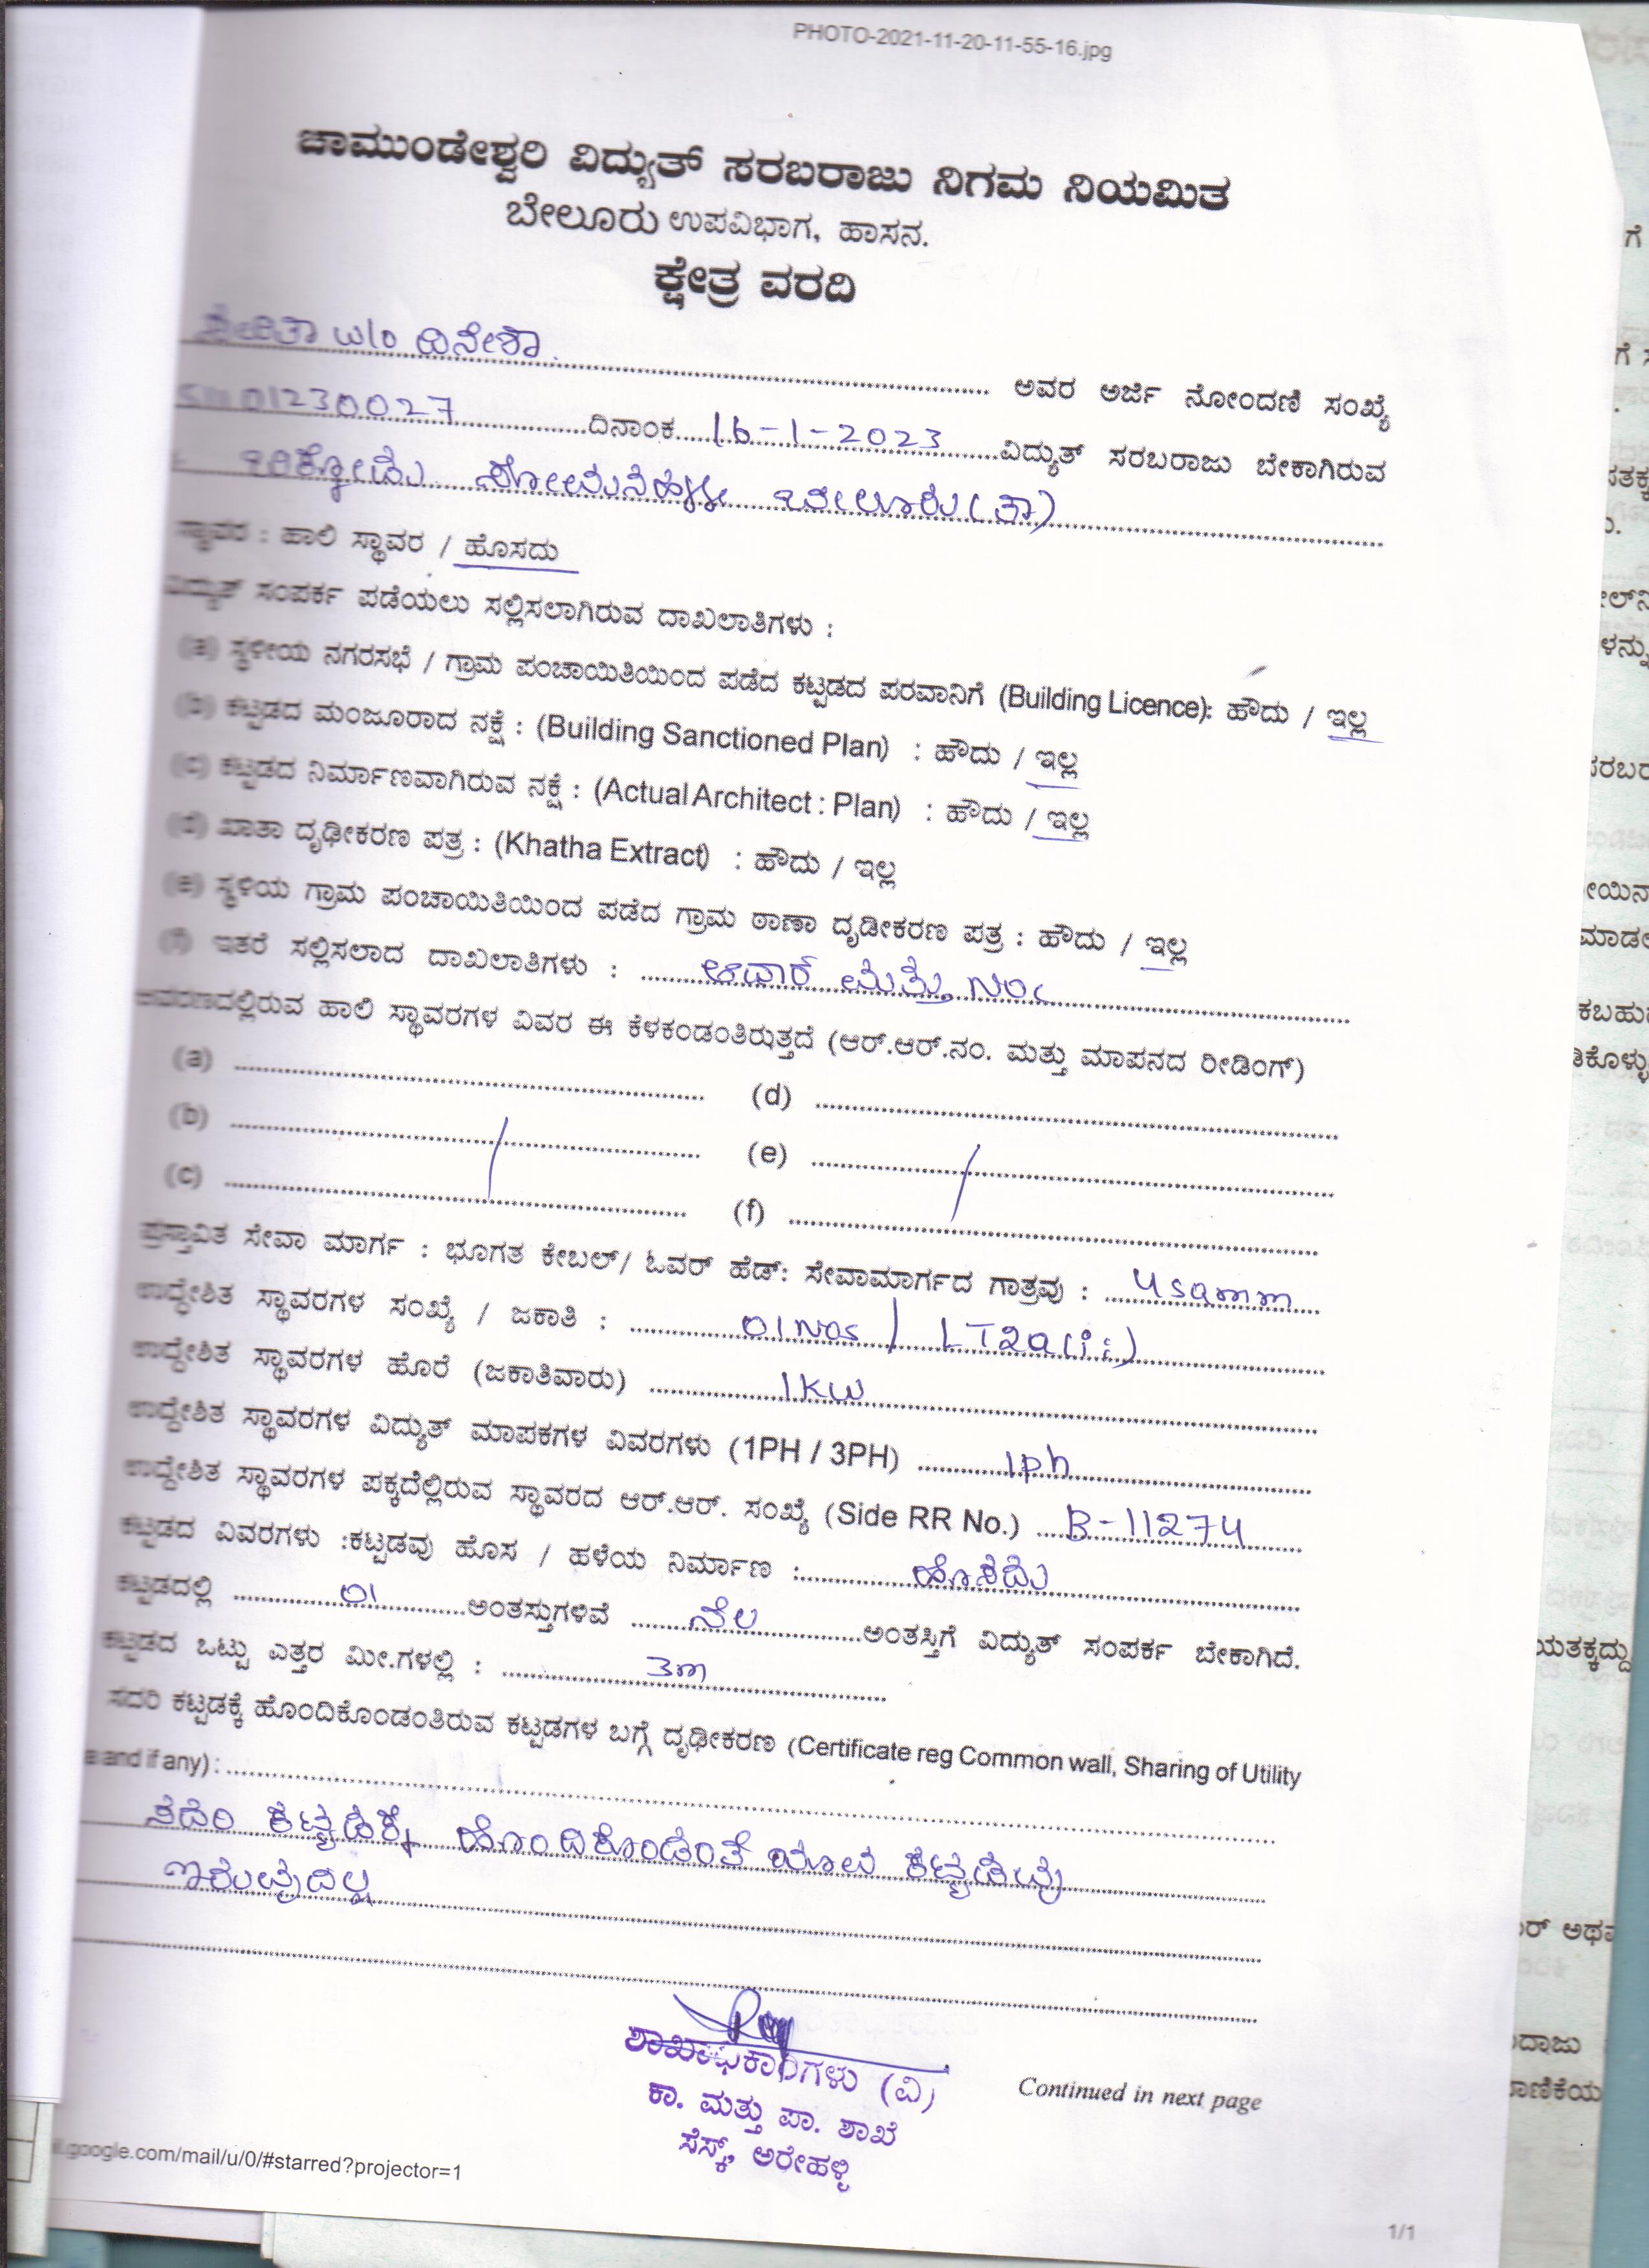 PHOTO-2021-11-20-11-55-16.jpg
ಚಾಮುಂಡೇಶ್ವರಿ ವಿದ್ಯುತ್ ಸರಬರಾಜು ನಿಗಮ ನಿಯಮಿತ
ಬೇಲೂರು ಉಪವಿಭಾಗ, ಹಾಸನ.
ಕ್ಷೇತ್ರ ವರದಿ
w/o ದಿನೇಶಾ. ಅವರ ಅರ್ಜಿ ನೋಂದಣಿ ಸಂಖ್ಯೆ
01230027 ದಿನಾಂಕ 16-1-2023 ವಿದ್ಯುತ್ ಸರಬರಾಜು ಬೇಕಾಗಿರುವ
ಬಿಕ್ಕೋಡು ಸೋಮನಹಳ್ಳಿ ಬೇಲೂರು (ತಾ)
ಸ್ಥಾವರ : ಹಾಲಿ ಸ್ಥಾವರ / ಹೊಸದು
ವಿದ್ಯುತ್ ಸಂಪರ್ಕ ಪಡೆಯಲು ಸಲ್ಲಿಸಲಾಗಿರುವ ದಾಖಲಾತಿಗಳು :
(a) ಸ್ಥಳೀಯ ನಗರಸಭೆ / ಗ್ರಾಮ ಪಂಚಾಯಿತಿಯಿಂದ ಪಡೆದ ಕಟ್ಟಡದ ಪರವಾನಿಗೆ (Building Licence): ಹೌದು / ಇಲ್ಲ
(b) ಕಟ್ಟಡದ ಮಂಜೂರಾದ ನಕ್ಷೆ : (Building Sanctioned Plan) : ಹೌದು / ಇಲ್ಲ
(c) ಕಟ್ಟಡದ ನಿರ್ಮಾಣವಾಗಿರುವ ನಕ್ಷೆ : (Actual Architect : Plan) : ಹೌದು / ಇಲ್ಲ
(d) ಖಾತಾ ದೃಢೀಕರಣ ಪತ್ರ : (Khatha Extract) : ಹೌದು / ಇಲ್ಲ
(e) ಸ್ಥಳಿಯ ಗ್ರಾಮ ಪಂಚಾಯಿತಿಯಿಂದ ಪಡೆದ ಗ್ರಾಮ ಠಾಣಾ ದೃಡೀಕರಣ ಪತ್ರ : ಹೌದು / ಇಲ್ಲ
(f) ಇತರೆ ಸಲ್ಲಿಸಲಾದ ದಾಖಲಾತಿಗಳು : ಆಧಾರ್ ಮತ್ತು NOC
ಆವರಣದಲ್ಲಿರುವ ಹಾಲಿ ಸ್ಥಾವರಗಳ ವಿವರ ಈ ಕೆಳಕಂಡಂತಿರುತ್ತದೆ (ಆರ್.ಆರ್.ನಂ. ಮತ್ತು ಮಾಪನದ ರೀಡಿಂಗ್)
(a) (d)
(b) (e)
(c) (f)
ಪ್ರಸ್ತಾವಿತ ಸೇವಾ ಮಾರ್ಗ : ಭೂಗತ ಕೇಬಲ್/ ಓವರ್ ಹೆಡ್: ಸೇವಾಮಾರ್ಗದ ಗಾತ್ರವು : 4sqmm
ಉದ್ದೇಶಿತ ಸ್ಥಾವರಗಳ ಸಂಖ್ಯೆ / ಜಕಾತಿ : 01Nos / LT2a(ii)
ಉದ್ದೇಶಿತ ಸ್ಥಾವರಗಳ ಹೊರೆ (ಜಕಾತಿವಾರು) 1KW
ಉದ್ದೇಶಿತ ಸ್ಥಾವರಗಳ ವಿದ್ಯುತ್ ಮಾಪಕಗಳ ವಿವರಗಳು (1PH / 3PH) 1ph
ಉದ್ದೇಶಿತ ಸ್ಥಾವರಗಳ ಪಕ್ಕದೆಲ್ಲಿರುವ ಸ್ಥಾವರದ ಆರ್.ಆರ್. ಸಂಖ್ಯೆ (Side RR No.) B-11274
ಕಟ್ಟಡದ ವಿವರಗಳು :ಕಟ್ಟಡವು ಹೊಸ / ಹಳೆಯ ನಿರ್ಮಾಣ : ಹೊಸದು
ಕಟ್ಟಡದಲ್ಲಿ 01 ಅಂತಸ್ತುಗಳಿವೆ ನೆಲ ಅಂತಸ್ತಿಗೆ ವಿದ್ಯುತ್ ಸಂಪರ್ಕ ಬೇಕಾಗಿದೆ.
ಕಟ್ಟಡದ ಒಟ್ಟು ಎತ್ತರ ಮೀ.ಗಳಲ್ಲಿ : 3m
ಸದರಿ ಕಟ್ಟಡಕ್ಕೆ ಹೊಂದಿಕೊಂಡಂತಿರುವ ಕಟ್ಟಡಗಳ ಬಗ್ಗೆ ದೃಢೀಕರಣ (Certificate reg Common wall, Sharing of Utility
and if any) :
ಸದರಿ ಕಟ್ಟಡಕ್ಕೆ ಹೊಂದಿಕೊಂಡಂತೆ ಯಾವ ಕಟ್ಟಡವು
ಇರುವುದಿಲ್ಲ
ಶಾಖಾಧಿಕಾರಿಗಳು (ವಿ)
ಕಾ. ಮತ್ತು ಪಾ. ಶಾಖೆ
ಸೆಸ್ಕ್, ಅರೇಹಳ್ಳಿ
Continued in next page
.google.com/mail/u/0/#starred?projector=1
1/1